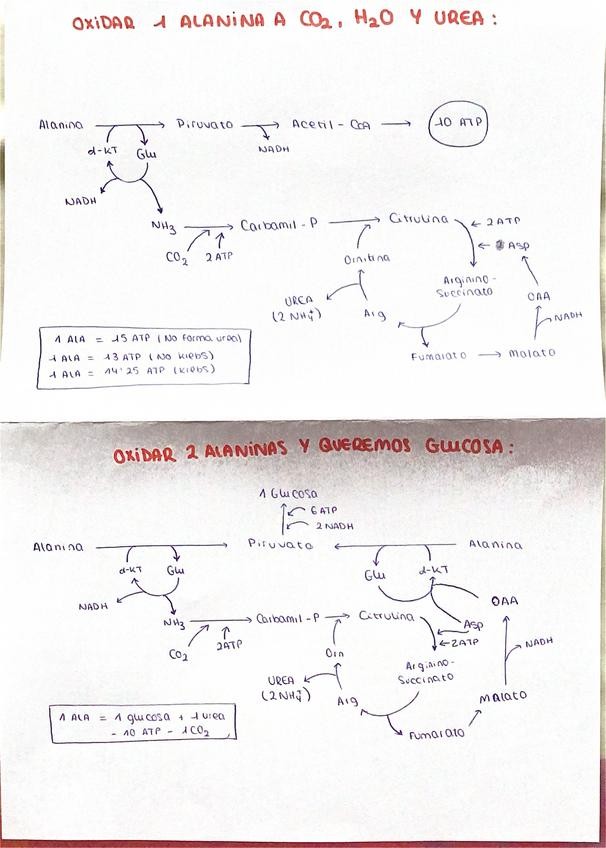 OXIDAR 1 ALANINA A CO2, H2O Y UREA:
Alanina Piruvato Acetil-CoA 10 ATP
d-KT Glu NADH
NADH
NH3 Carbamil-P Citrulina 2ATP
CO2 2ATP Asp
Ornitina
Arginino-
Succinato
UREA OAA
(2 NH4+) Arg NADH
Fumarato Malato
1 ALA = 15 ATP (No forma urea)
1 ALA = 13 ATP (No Krebs)
1 ALA = 14'25 ATP (Krebs)
OXIDAR 2 ALANINAS Y QUEREMOS GLUCOSA:
1 Glucosa
6 ATP
2 NADH
Alanina Piruvato Alanina
d-KT Glu Glu d-KT
NADH OAA
NH3 Carbamil-P Citrulina Asp
CO2 2ATP 2ATP NADH
Orn
Arginino-
Succinato
UREA
(2NH4+) Arg Malato
Fumarato
1 ALA = 1 glucosa + 1 urea
- 10 ATP - 1CO2